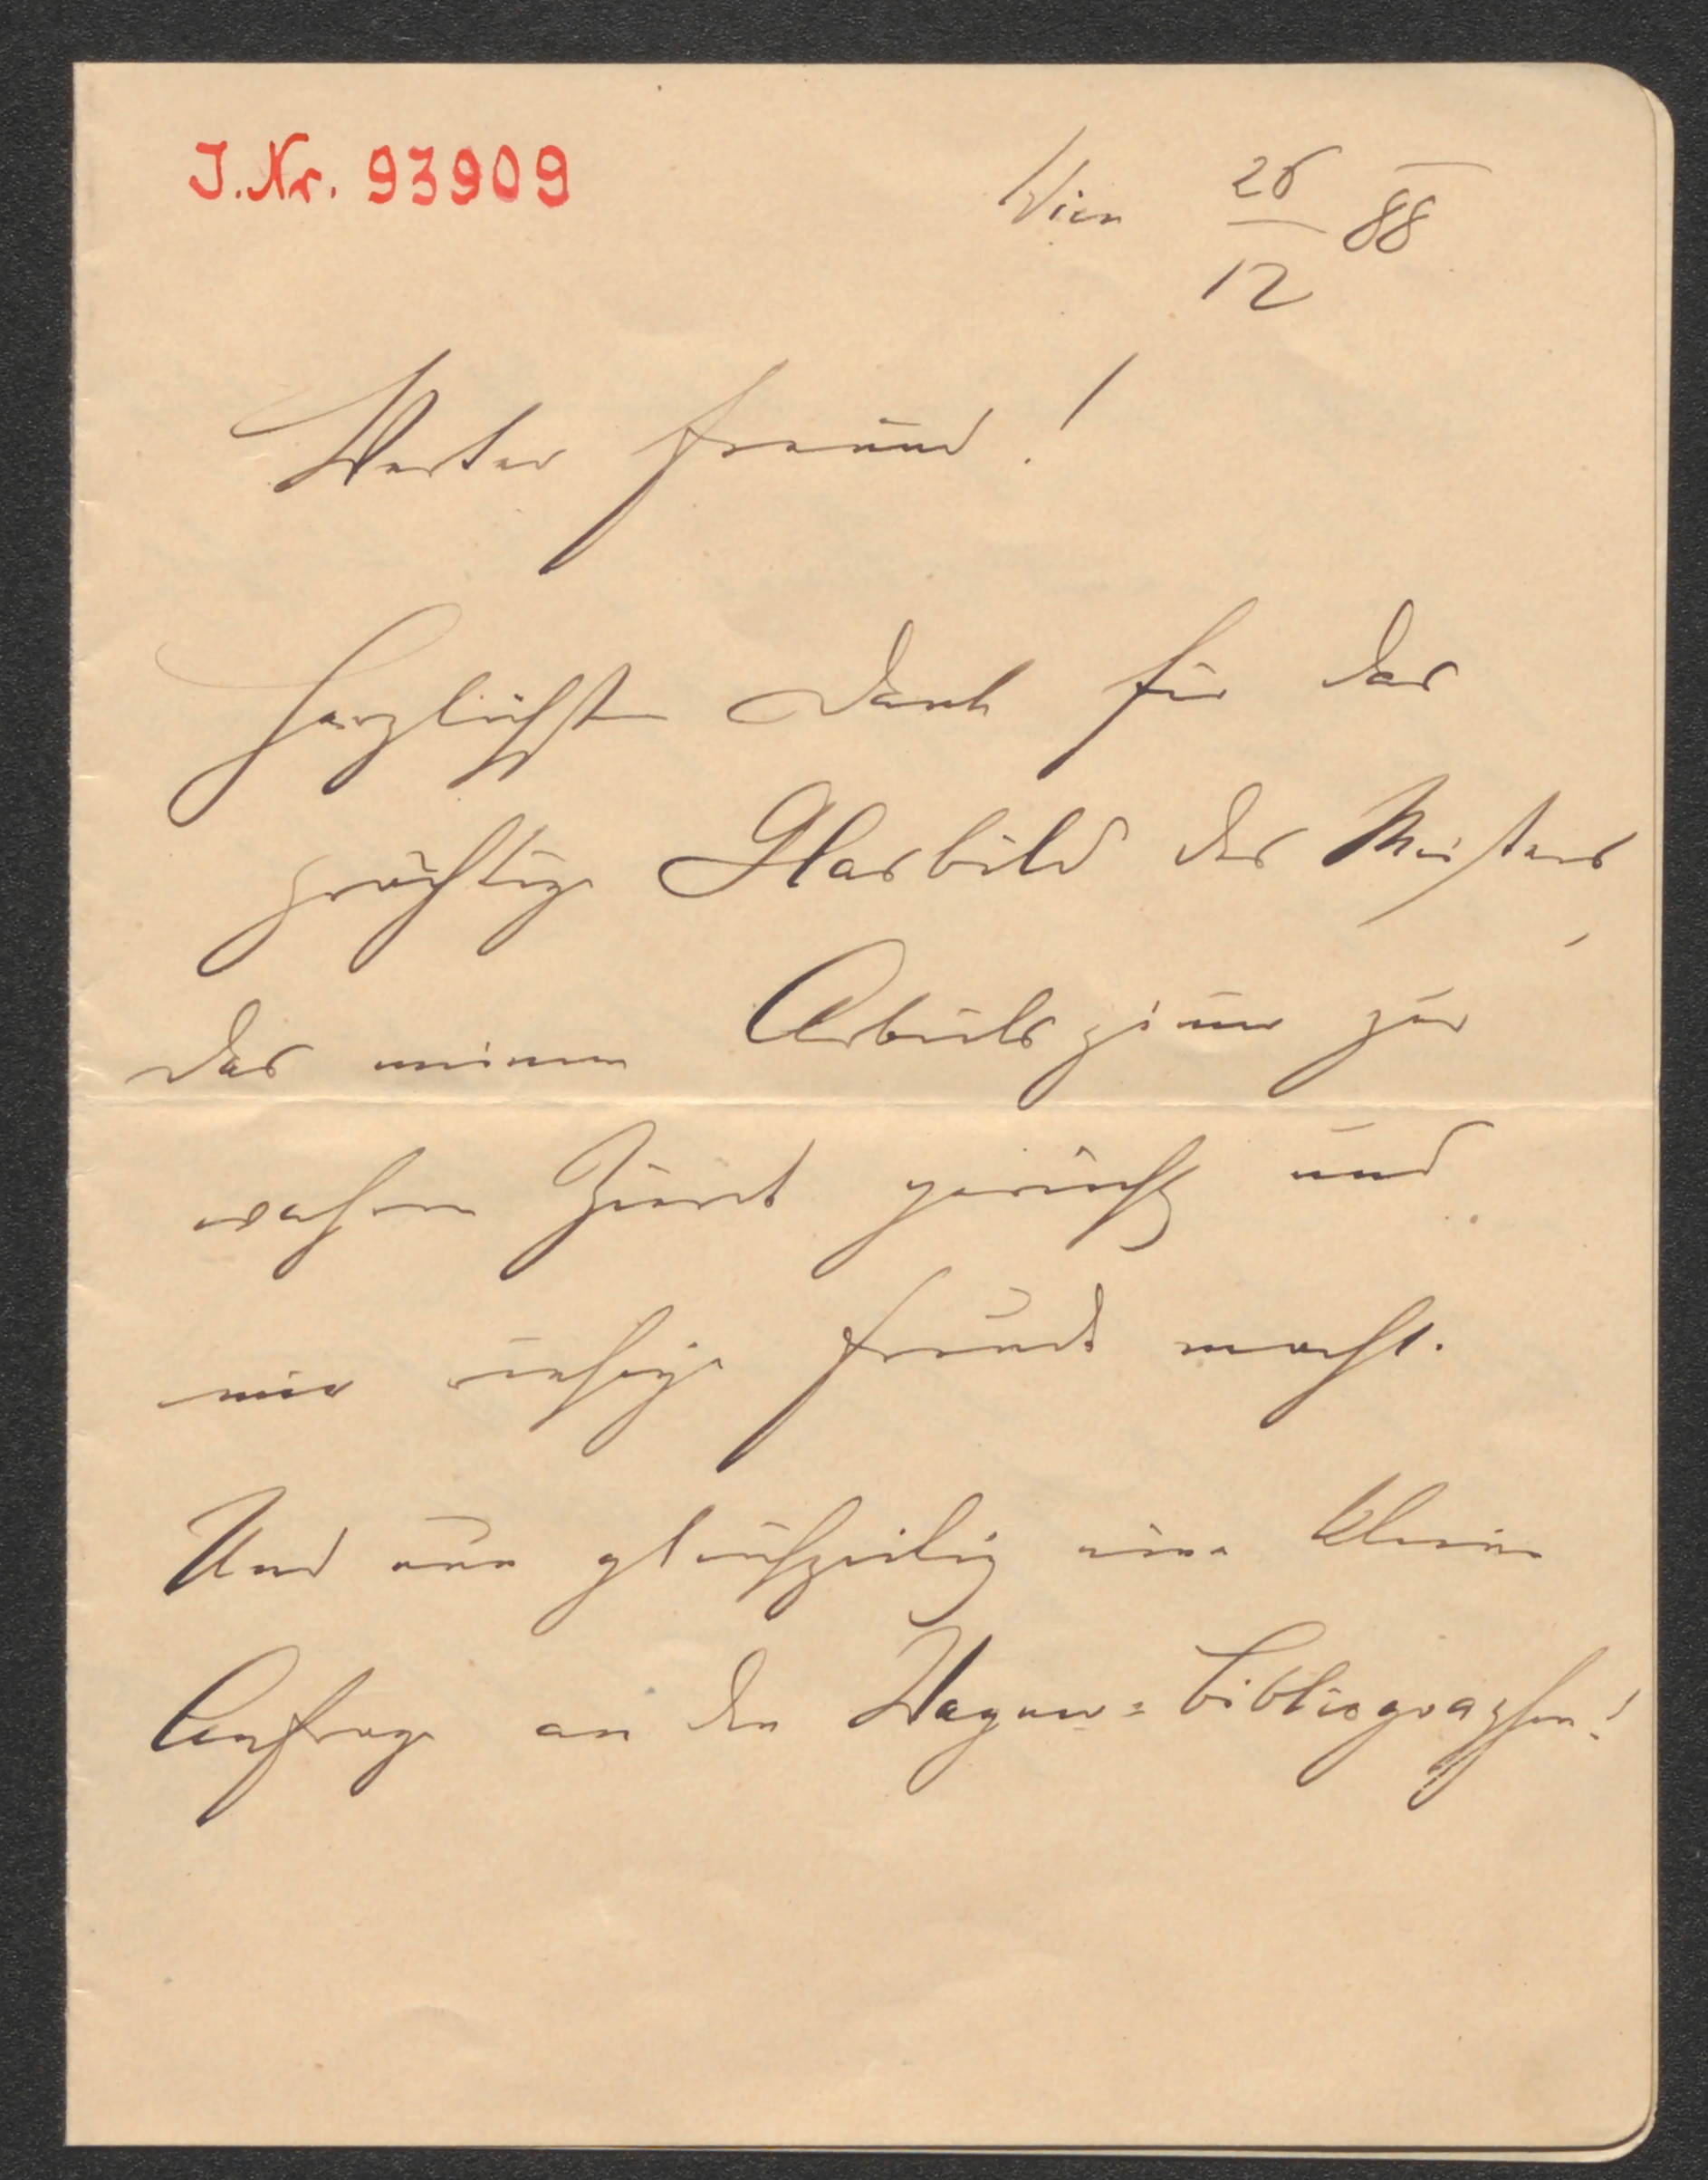 J.Nr. 93909
Wien 26/12 88
Werter Freund!
Herzlichsten Dank für das
prächtige Glasbild des Meisters,
das meinem Arbeitszimmer zur
wahren Zierde gereicht und
mir Freude macht.
Und nun gleichzeitig eine kleine
Anfrage an den Wagner=Bibliographen!